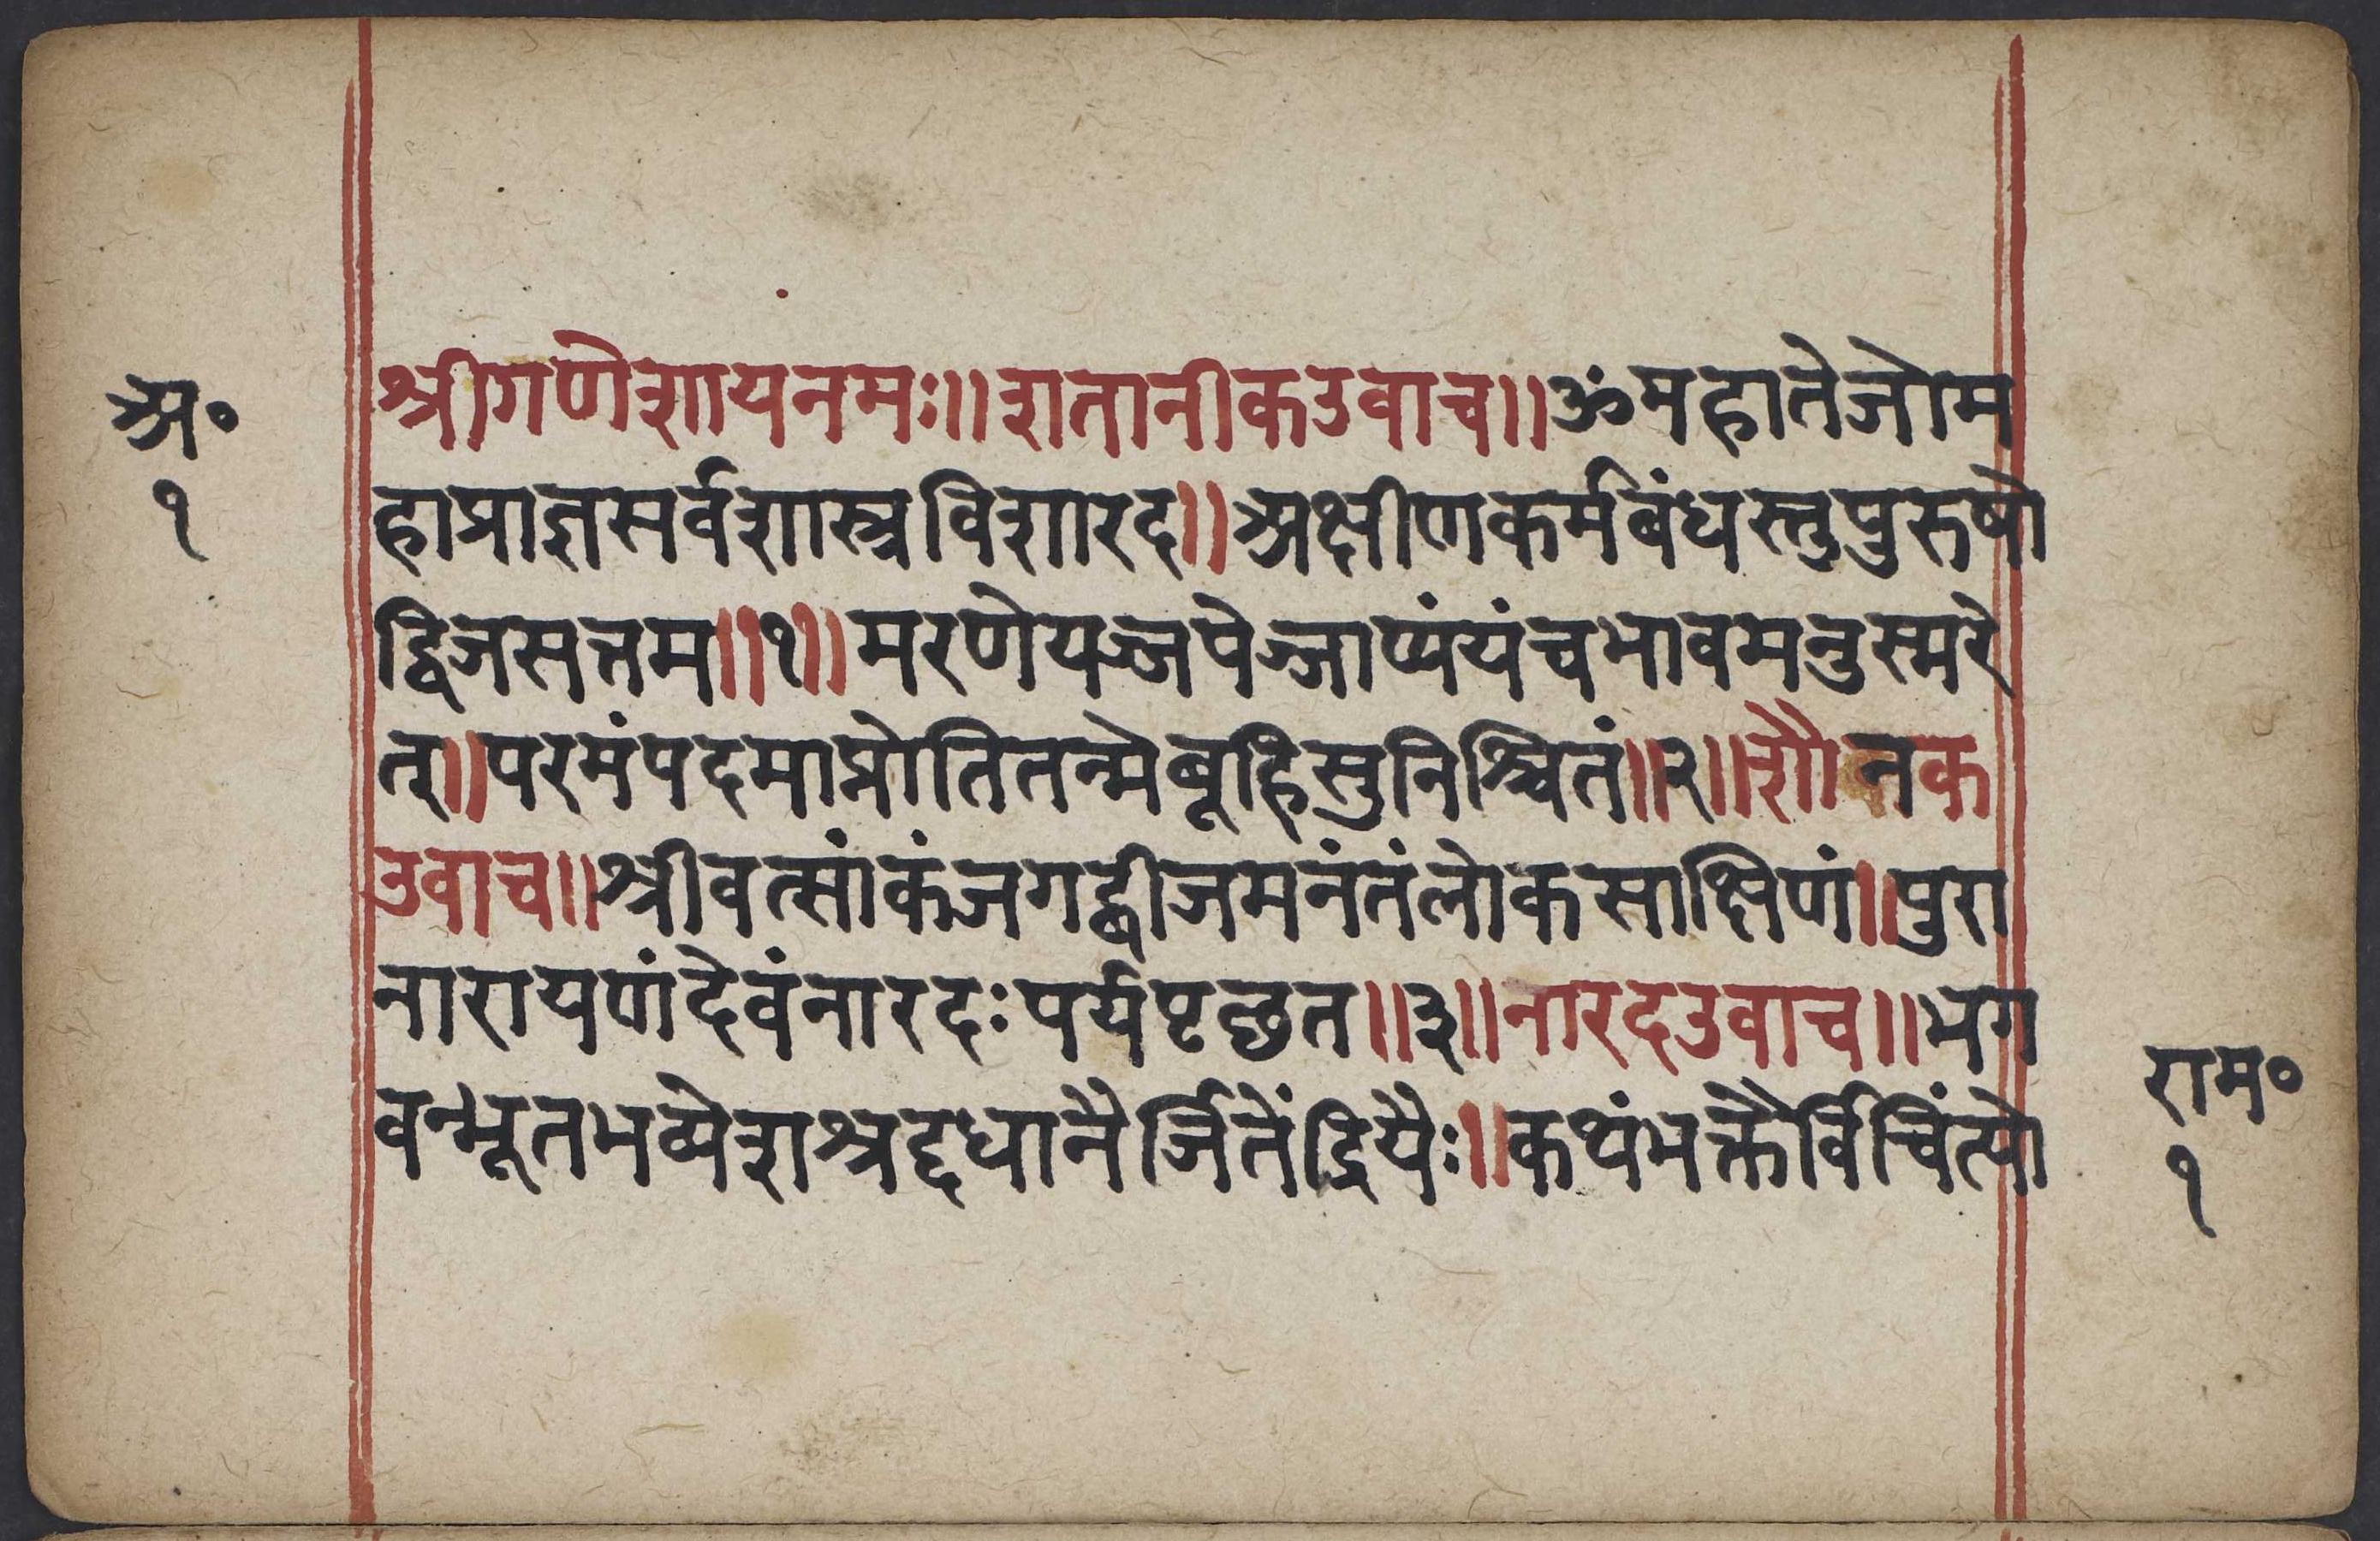 अ॰
१
श्रीगणेशायनमः॥शतानीकउवाच॥ॐमहातेजोम
हाप्राज्ञसर्वशास्त्रविशारद॥अक्षीणकर्मबंधस्तुपुरुषो
द्विजसत्तम॥१॥मरणेयज्जपेज्जाप्यंयंचभावमनुस्मरे
त्॥परमंपदमाप्नोतितन्मेब्रूहिसुनिश्चितं॥२॥शौनक
उवाच॥श्रीवत्सांकंजगद्बीजमनंतंलोकसाक्षिणं॥पुरा
नारायणंदेवंनारदःपर्यपृच्छत॥३॥नारदउवाच॥भग
वन्भूतभव्येशश्रद्दधानैर्जितेंद्रियैः॥कथंभक्तैर्विचिंत्यो
राम॰
१